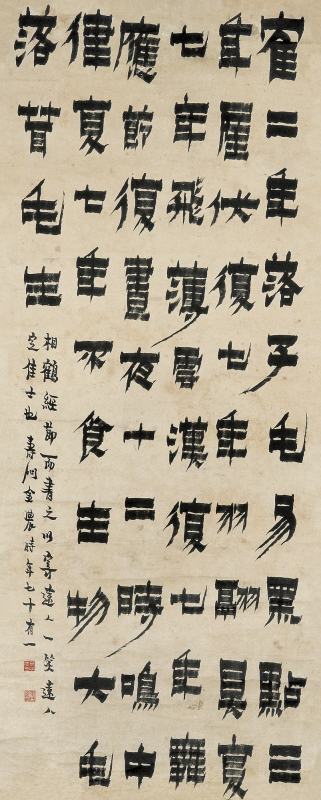 寉二年落子毛易黑點三
年產伏復七年羽翮具复
七年飛薄雲漢復七年舞
應節復晝夜十二時鳴中
律复七年不食生物大毛
落茸毛生
相鶴經節而書之以寄遠人一笑遠人
定佳士也壽門金農時年七十有一